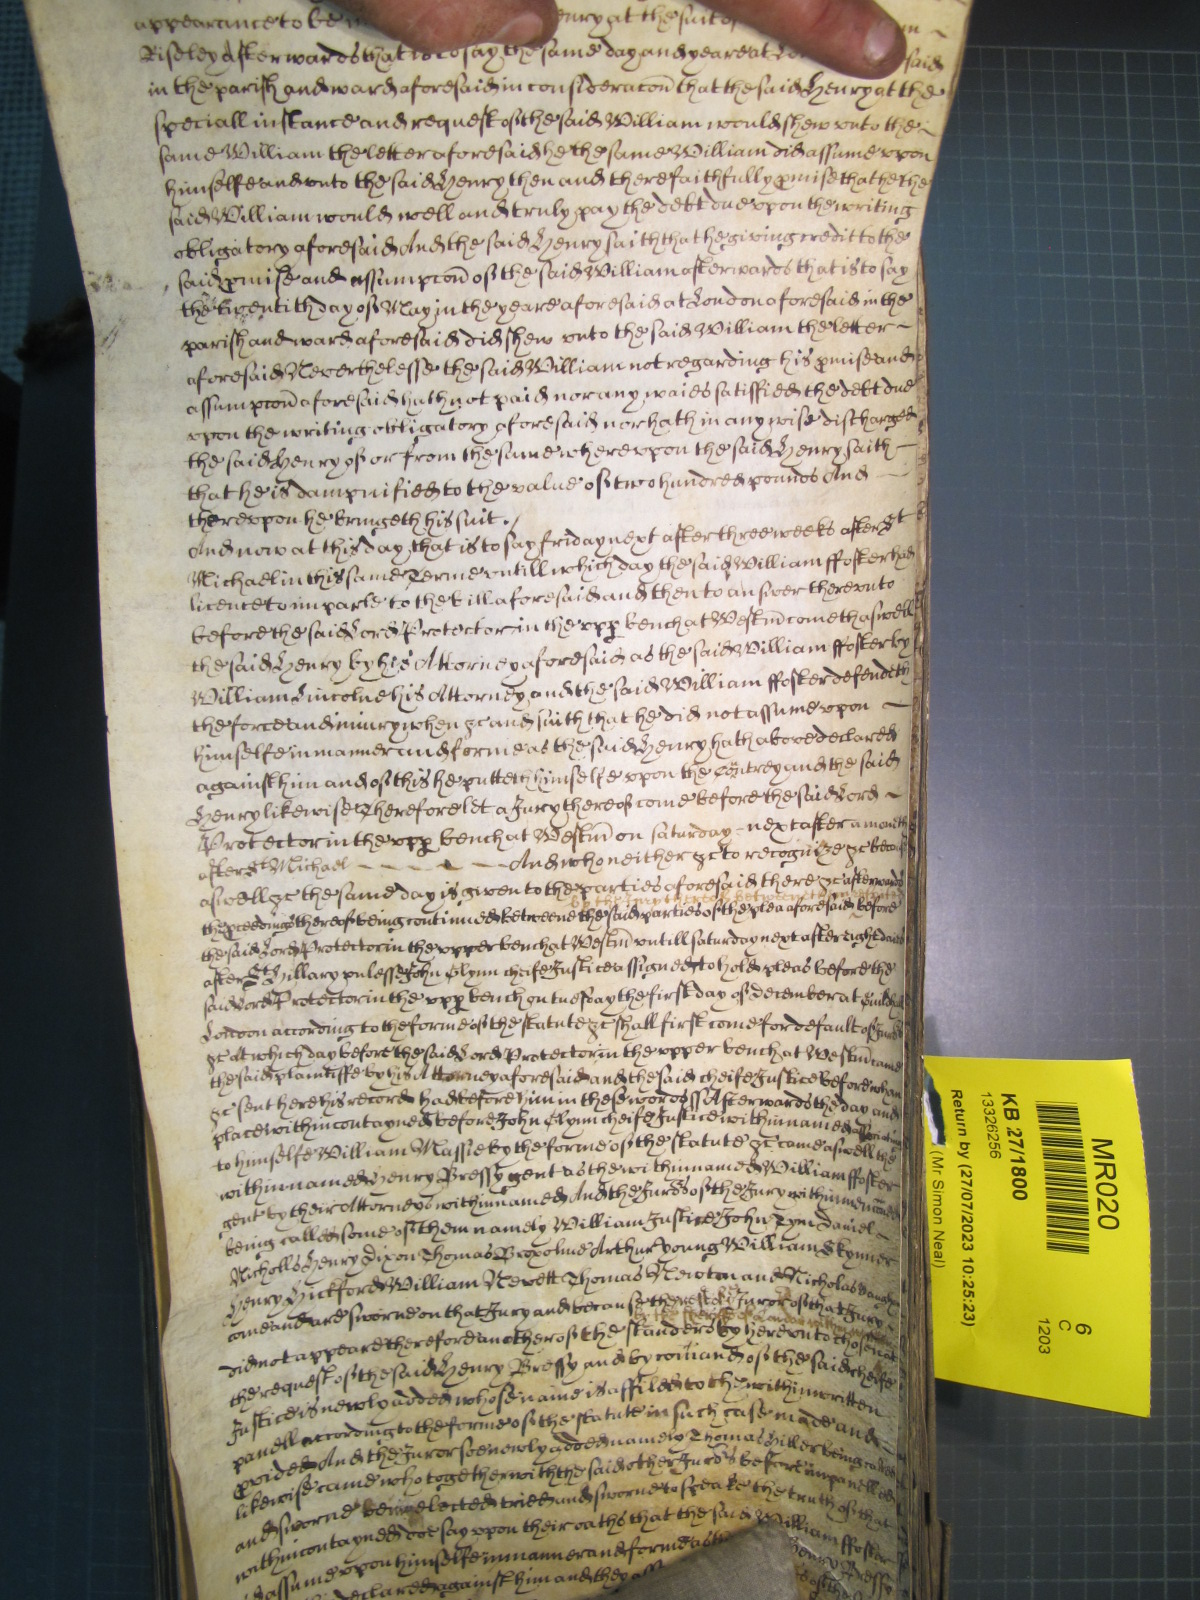 appearance to be in enry at the suit of
Riseley afterwards that is to say the same day and yeare at said
in the parish and ward aforesaid in consideracon that the said Henry at the
speciall instance and request of the said William would shew unto the
same William the letter aforesaid he the same William did assume upon
himselfe and unto the said Henry then and there faithfully pmise that he the
said William would well and truly pay the debt due upon the writing
obligatory aforesaid And the said Henry saith that he giving credit to the
said pmise and assumpcon of the said William afterwards that is to say
the twentith day of May in the yeare aforesaid at London aforesaid in the
parish and ward aforesaid did shew unto the said William the letter
aforesaid Neverthelesse the said William not regarding his pmise and
assumpcon aforesaid hath not paid nor any waies satisfied the debt due
upon the writing obligatory aforesaid nor hath in any wise discharged
the said Henry of or from the same whereupon the said Henry saith
that he is dampnified to the value of two hundred pounds And
thereupon he bringeth his suit.
And now at this day that is to say friday next after three weeks after St
Michael in this same Terme untill which day the said William ffoster had
licence to imparle to the bill aforesaid and then to answer thereunto
before the said Lord Protector in the upp bench at Westm come th aswell
the said Henry by his Attorney aforesaid as the said William ffoster by
William Lincolne his Attorney and the said William ffoster defendeth
the force and iniury when &c and saith that he did not assume upon
himselfe in manner and forme as the said Henry hath above declared
against him and of this he putteth himselfe upon the Contrey and the said
Henry likewise Therefore let a Jury thereof come before the said Lord
Protector in the upp bench at Westm on saturday next after a moneth
after St Michael And who neither &c to recognize &c because
aswell &c the same day is given to the parties aforesaid there &c afterwards
the pceedings thereof being continued betweene the said parties of the plea aforesaid before
the said Lord Protector in the upper bench at Westm untill saturday next after eight daies
after St Hillary unlesse John Glynn cheife Justice assigned to hold pleas before the
said Lord Protector in the upp bench on tuesday the first day of December at Guildhall
London according to the forme of the statute &c shall first come for default of Jurors
&c At which day before the said Lord Protector in the upper bench at Westm came
the said plaintiffe by his Attorney aforesaid and the said cheife Justice before whom
&c sent here his record had before him in these words ss Afterwards the day and
place within contayned before John Glynn cheife Justice within named associating
to himselfe William Massie by the forme of the statute &c came aswell the
within named Henry Bressy gent as the within named William ffoster
gent by their Attorneys within named And the Jurors of the Jury within mencioned
being called some of them namely William Justice John Tym Daniel
Nicholls Henry Dixon Thomas Arthur Young William Skynner
Henry Huckford William Newett Thomas Newton and Nicholas
come and are sworne on that Jury and because the rest of the Jurors of that Jury
did not appeare therefore another of the standers by hereunto chosen at
the request of the said Henry Bressy and by comand of the said cheife
Justice is newly added whose name is affiled to the within written
panell according to the forme of the statute in such case made and
pvided And the Juror soe newly added namely Thomas Hiller being called
likewise came who together with the said other Jurors before impanelled
and sworne being elected tried and sworne to speake the truth of that
within contayned doe say upon their oaths that the said William ffoster
assume upon himselfe in manner and forme as the Henry Bressy
declared against him and they of the
MR020
6
C
1203
KB 27/1800
13326256
Return by (27/07/2023 10:25:23)
(Mr Simon Neal)